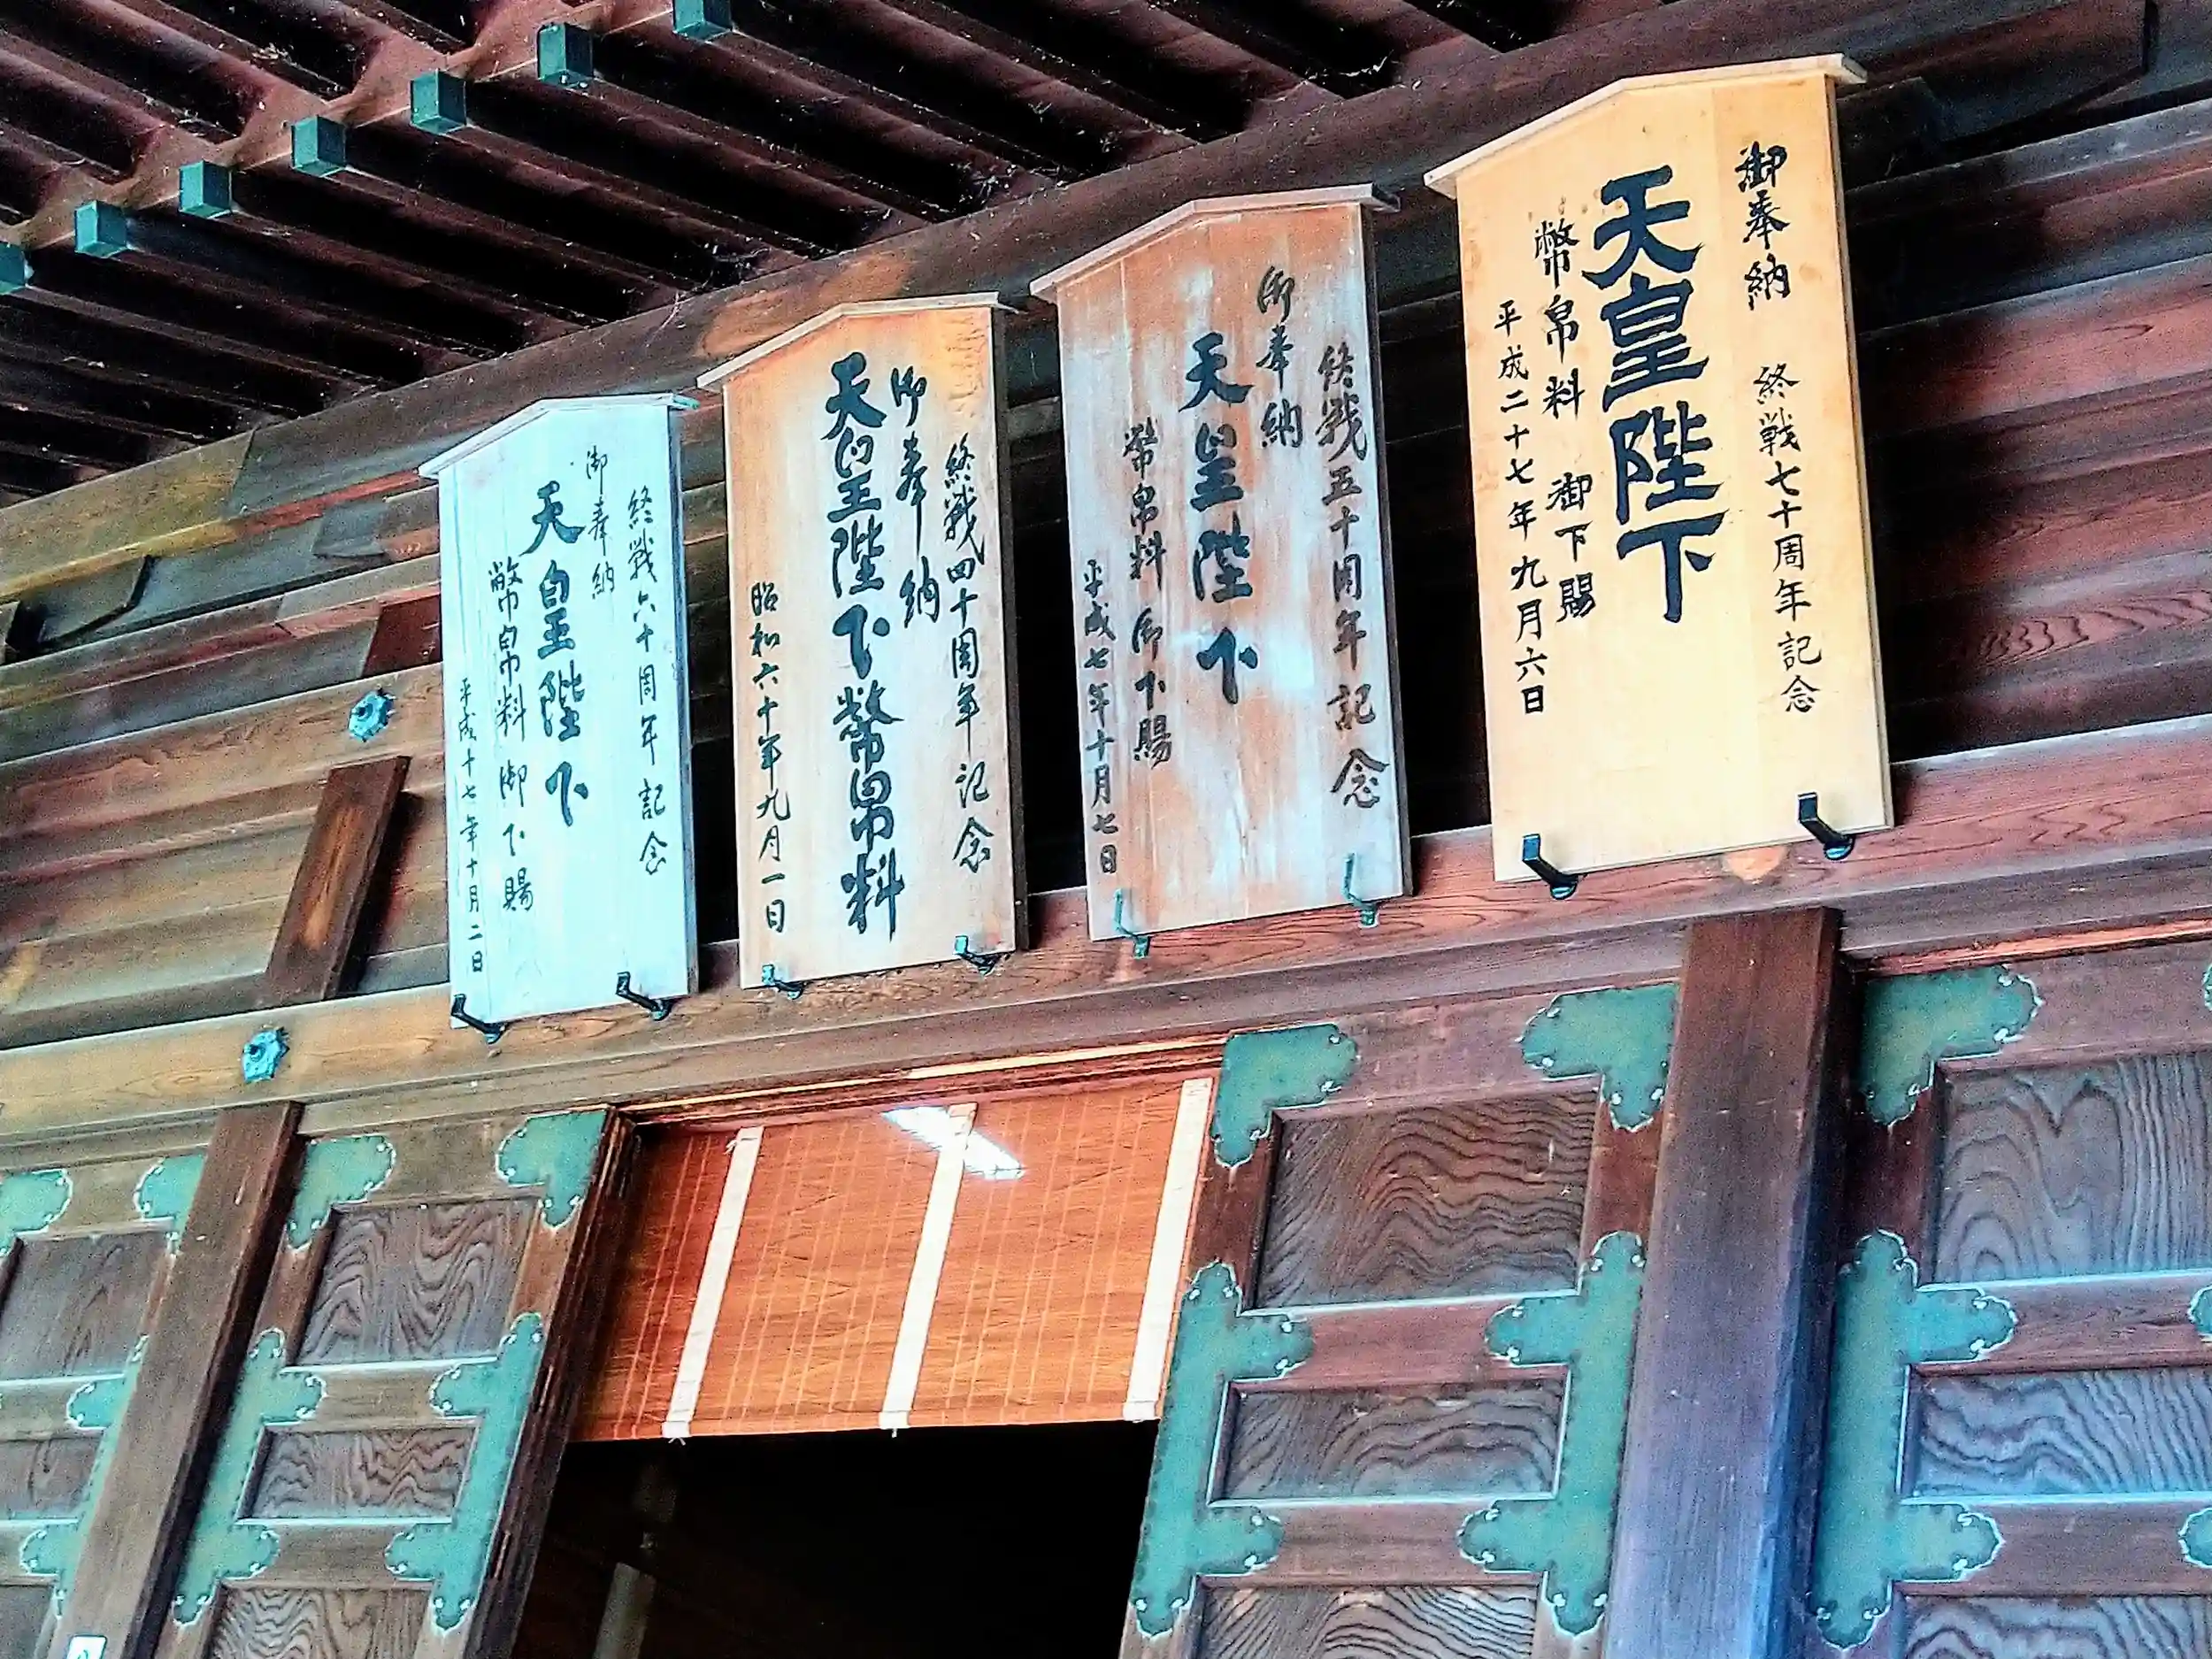 御奉納 終戦七十周年記念
天皇陛下
幣帛料 御下賜
平成二十七年九月六日
終戦五十周年記念
御奉納
天皇陛下
幣帛料 御下賜
平成七年十月七日
終戦四十周年記念
御奉納
天皇陛下幣帛料
昭和六十年九月一日
終戦六十周年記念
御奉納
天皇陛下
幣帛料 御下賜
平成十七年十月二日